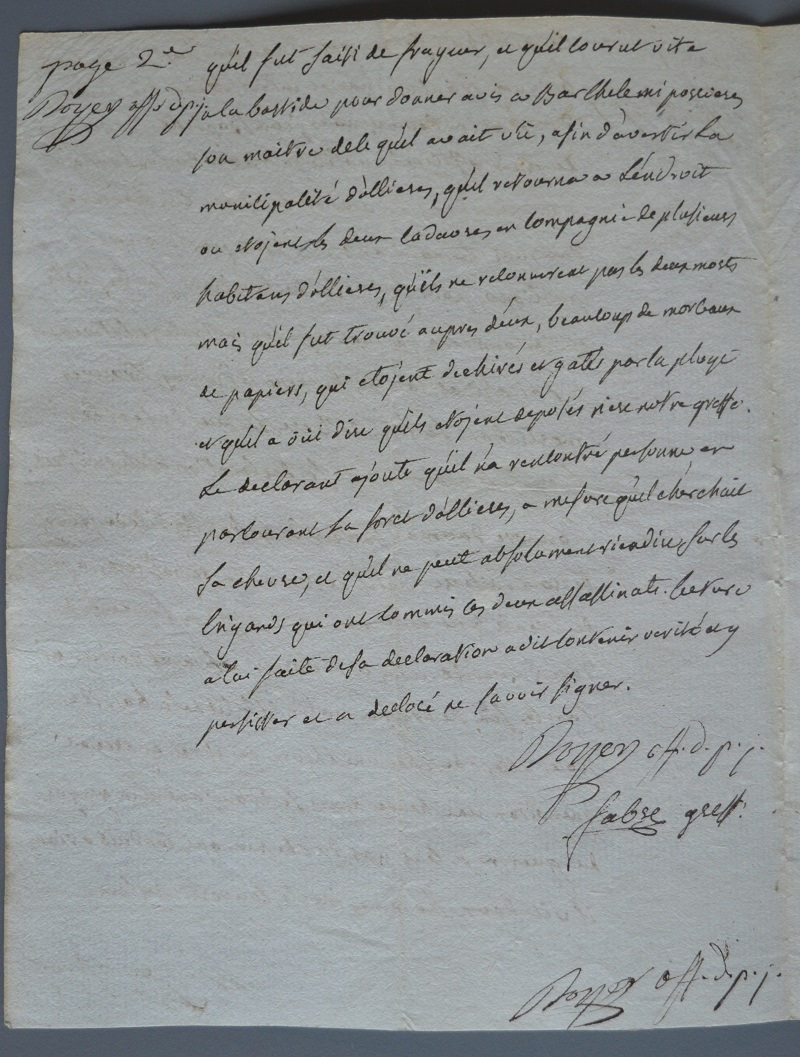 page 2.e
Boyer off. d. p. j.
qu'il fut saisi de frayeur, et qu'il courut vite
a la bastide pour donner avis a Barthelemi
son maitre de ce qu'il avoit vu, afin d'avertir la
municipalité d'ollieres, qu'il retourna a l'éndroit
ou etojent les deux cadavres en compagnie de plusieurs
habitans d'ollieres, qu'ils ne reconnurent pas les deux morts
mais qu'il fut trouvé aupres d'eux, beaucoup de morceaux
de papiers, qui etojent dechirés et gatés par la pluye
et qu'il a öüi dire qu'ils etojent deposés riere notre greffe.
Le declarant ajoute qu'il n'a rencontré personne en
parcourant la foret d'ollieres, a mesure qu'il cherchait
sa chevre, et qu'il ne peut absolument rien dire sur les
brigands qui ont commis ces deux assassinats. lecture
a lui faite de sa declaration a dit contenir verité et y
persister et a declaré ne savoir signer.
Boyer off. d. p. j.
fabre greff.
Boyer off. d. p. j.